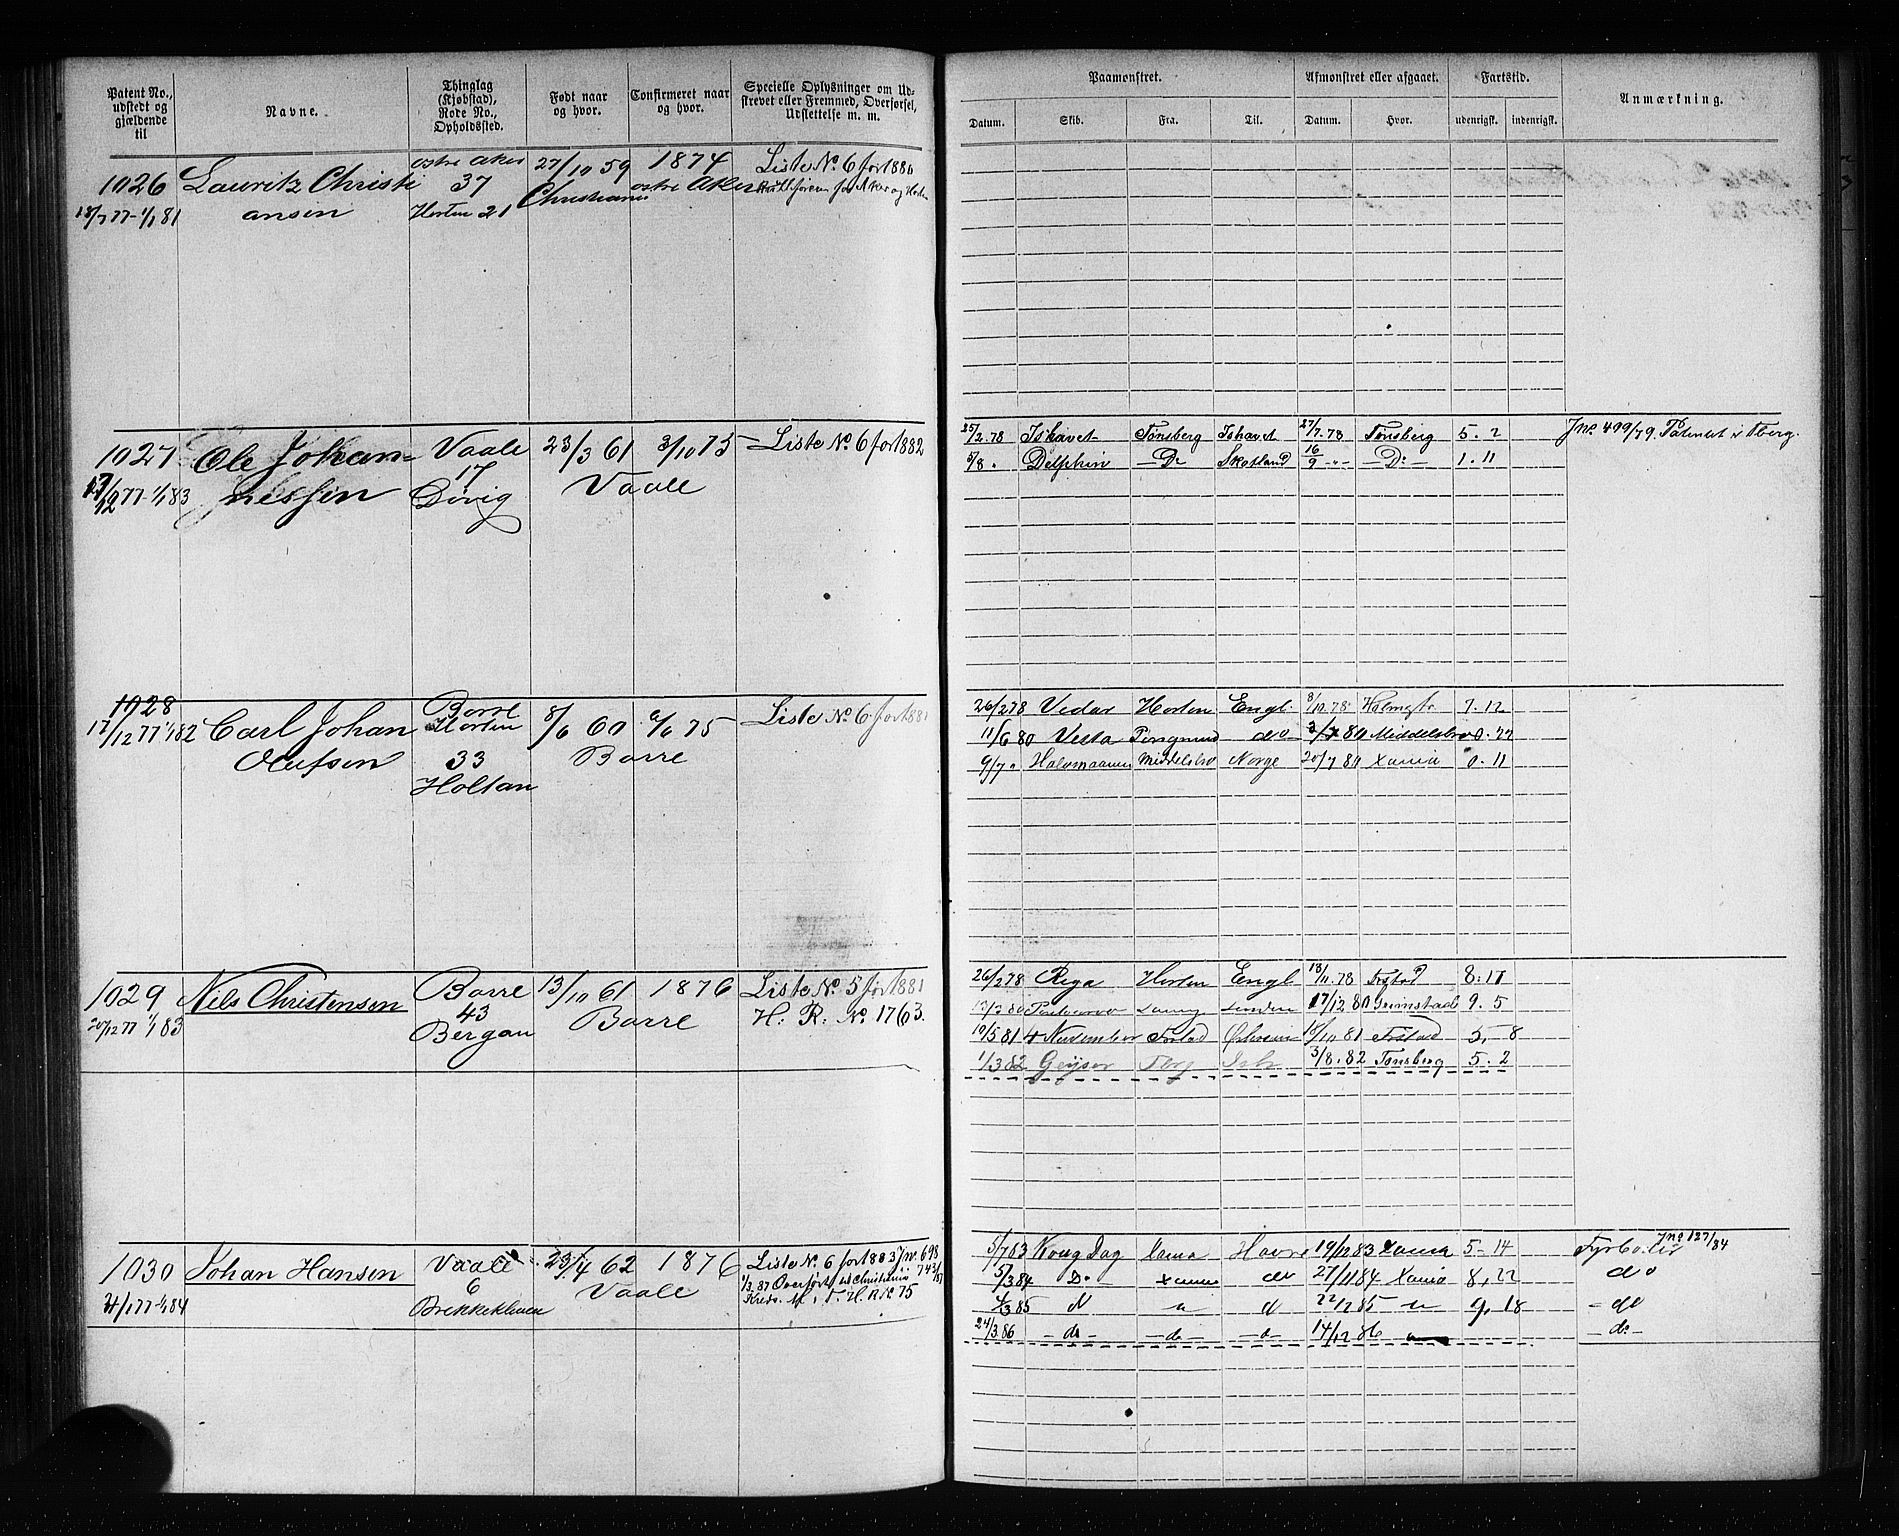 Patent No., udstedt og gjældende til
Navne.
Thinglag (Kjøbstad), Rode No., Opholdssted.
Født naar og hvor.
Confirmeret naar og hvor.
Specielle Oplysninger om Udskrevet eller Fremmed, Overførsel, Udslettelse m. m.
Paamønstret.
Afmønstret eller afgaaet.
Fartstid.
Anmærkning.
Datum. Skib. Fra. Til. Datum. Hvor. udenrigsk. indenrigsk.
1026 Lauritz Christi østre Aker 27/10 59 1874 Liste No. 6 for 1880
ansen 37 Christiania østre Aker
Horten 21
1027 Ole Johan- Vaale 23/3 61 3/10 75 Liste No. 6 for 1882
nessen 17 Vaale
Døvig
25/2.78 Ishavet Tønsberg Ishavet 27/7.78 Tønsberg 5.2 Jno. 499/79. Patentet i Tberg.
5/8 Delphin Do Skotland 16/9 Do 1.11
1028 Carl Johan Borre 8/6 60 75 Liste No. 6 for 1881
17/12 77 1/1 82 Olufsen Horten Borre
33
Holtan
26/2 78 Vidar Horten Engl. 8/12.78 Holmgt 7.12
11/6 80 Vesta do 3/7 80 Middelsbro 0.22
9/7 Halvmaanen Middelsbro Norge 20/7 80 Xania 0.11
1029 Nils Christensen Borre 13/10 61 1876 Liste No. 5 for 1881
20/12 77 1/1 83 43 Borre H. R. No. 1763.
Bergan
26/2 78 Riga Horten Engl 18/11.78 8.17
17/12 80 Grimstad 9.5
10/5 81 4 November Frstad 10/10 81 Frstad 5. 8
1/3 82 Geyser Tbrg Ish 3/8.82 Tønsberg 5.2
1030 Johan Hansen Vaale 23/4 62 1876 Liste No. 6 for 1883 Jnr. 698
6 Vaale 1/3.87 Overført til Christiania 743/87
Brekkekleven Kreds. H. R. No 75
5/7 83 Kong Dag Xania Havre 19/12 83 Xania 5-14 Fyrbøder Jno 127/84
5/3 84 Do Xania do 27/11 84 Xania 8,22 do
4/3 85 d d 22/12 85 9,18 do
24/3.86 do do d 14/12 86 do